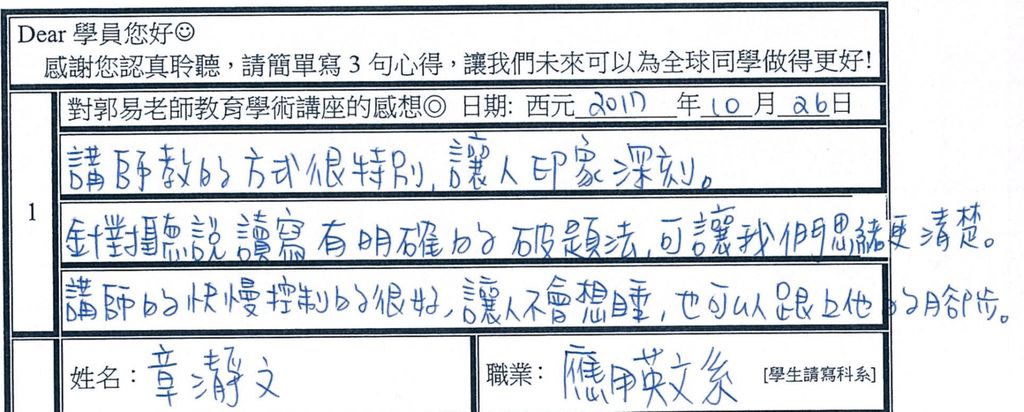 Dear 學員您好☺
感謝您認真聆聽，請簡單寫 3 句心得，讓我們未來可以為全球同學做得更好!
1
對郭易老師教育學術講座的感想◎ 日期: 西元 2017 年 10 月 26 日
講師教的方式很特別，讓人印象深刻。
針對聽說讀寫有明確的破題法，可讓我們思緒更清楚。
講師的快慢控制的很好，讓人不會想睡，也可以跟上他的腳步。
姓名：章瀞文 職業：應用英文系 [學生請寫科系]